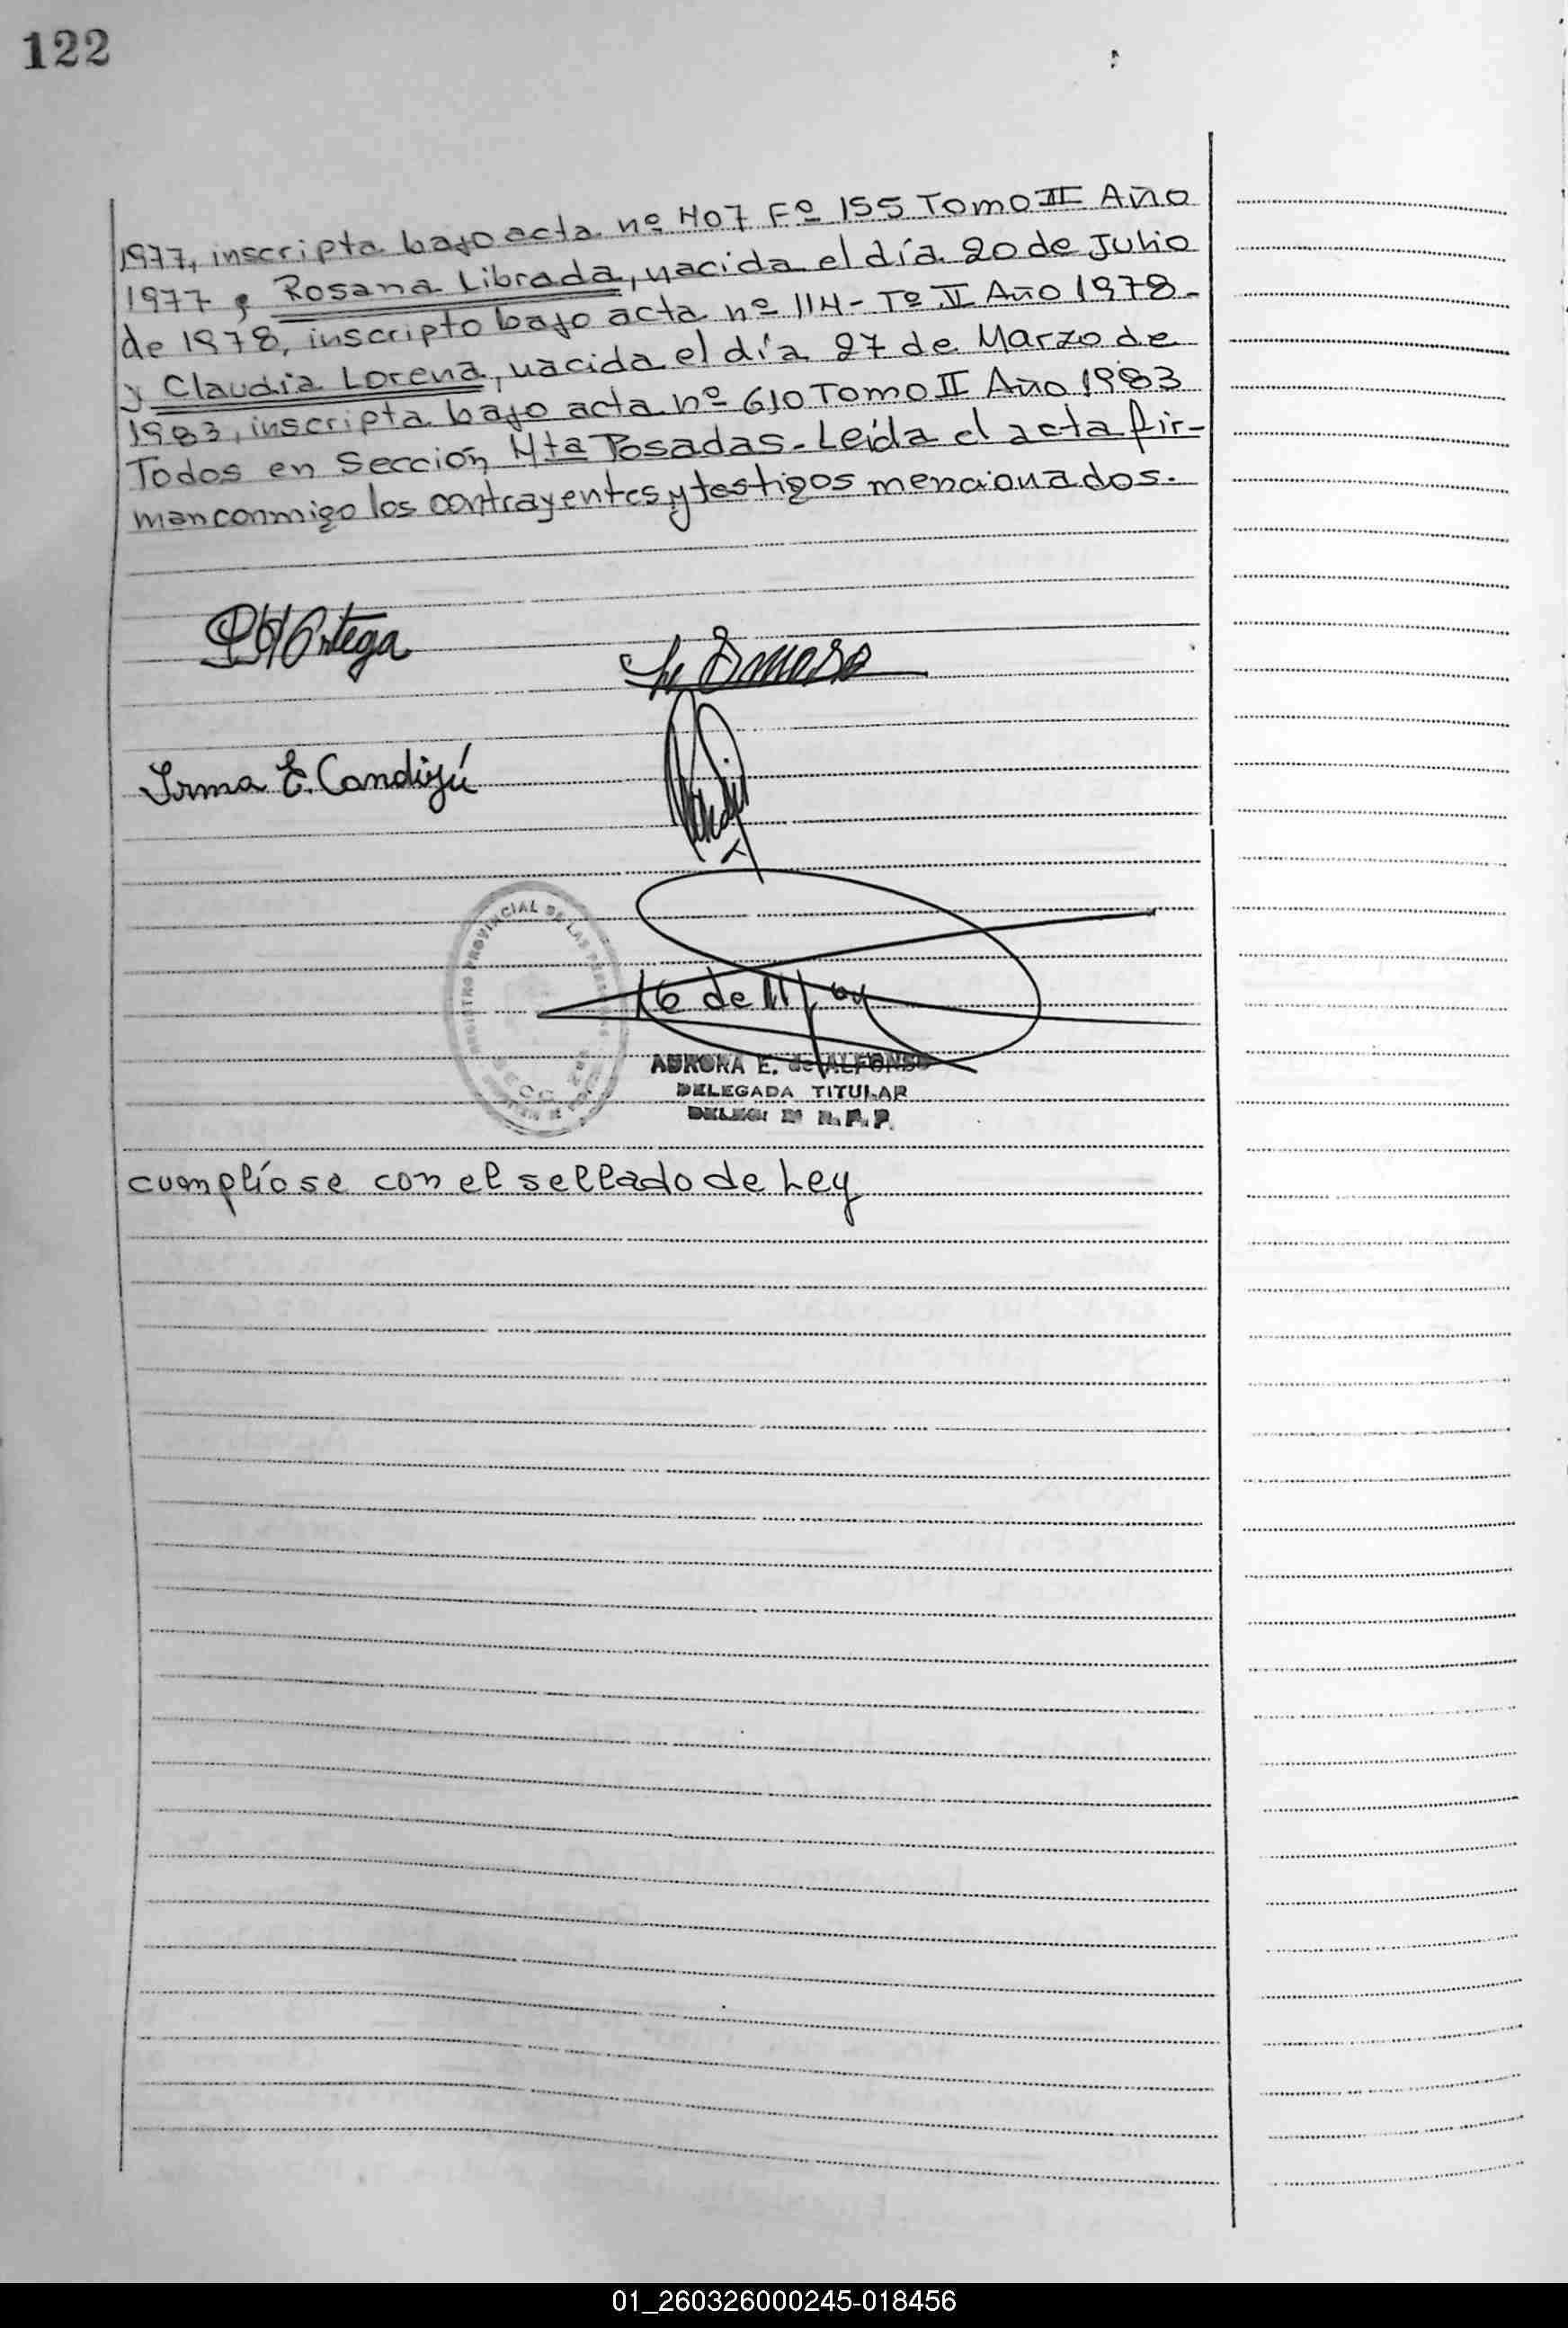 122
1977, inscripta bajo acta nº 407 Fº 155 Tomo II Año
1977, Rosana Librada, nacida el día 20 de Julio
de 1978, inscripto bajo acta nº 114 - Tº II Año 1978 -
y Claudia Lorena, nacida el día 27 de Marzo de
1983, inscripta bajo acta nº 610 Tomo II Año 1983
Todos en Sección 4ta Posadas - Leída el acta fir-
man conmigo los contrayentes y testigos mencionados.-
Ortega
Irma E. Candiyú
REGISTRO PROVINCIAL DE LAS
16 de
AURORA E. de ALFONSO
DELEGADA TITULAR
R. P. P.
cumplióse con el sellado de Ley
01_260326000245-018456